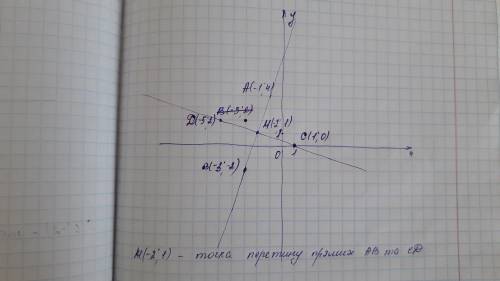 y
A(-1;4)
B(-3;2)
D(-5;2)
M(-2;1)
1
C(1;0)
0
1
x
B(-3;-2)
M(-2;1) - точка перетину прямих AB та CD